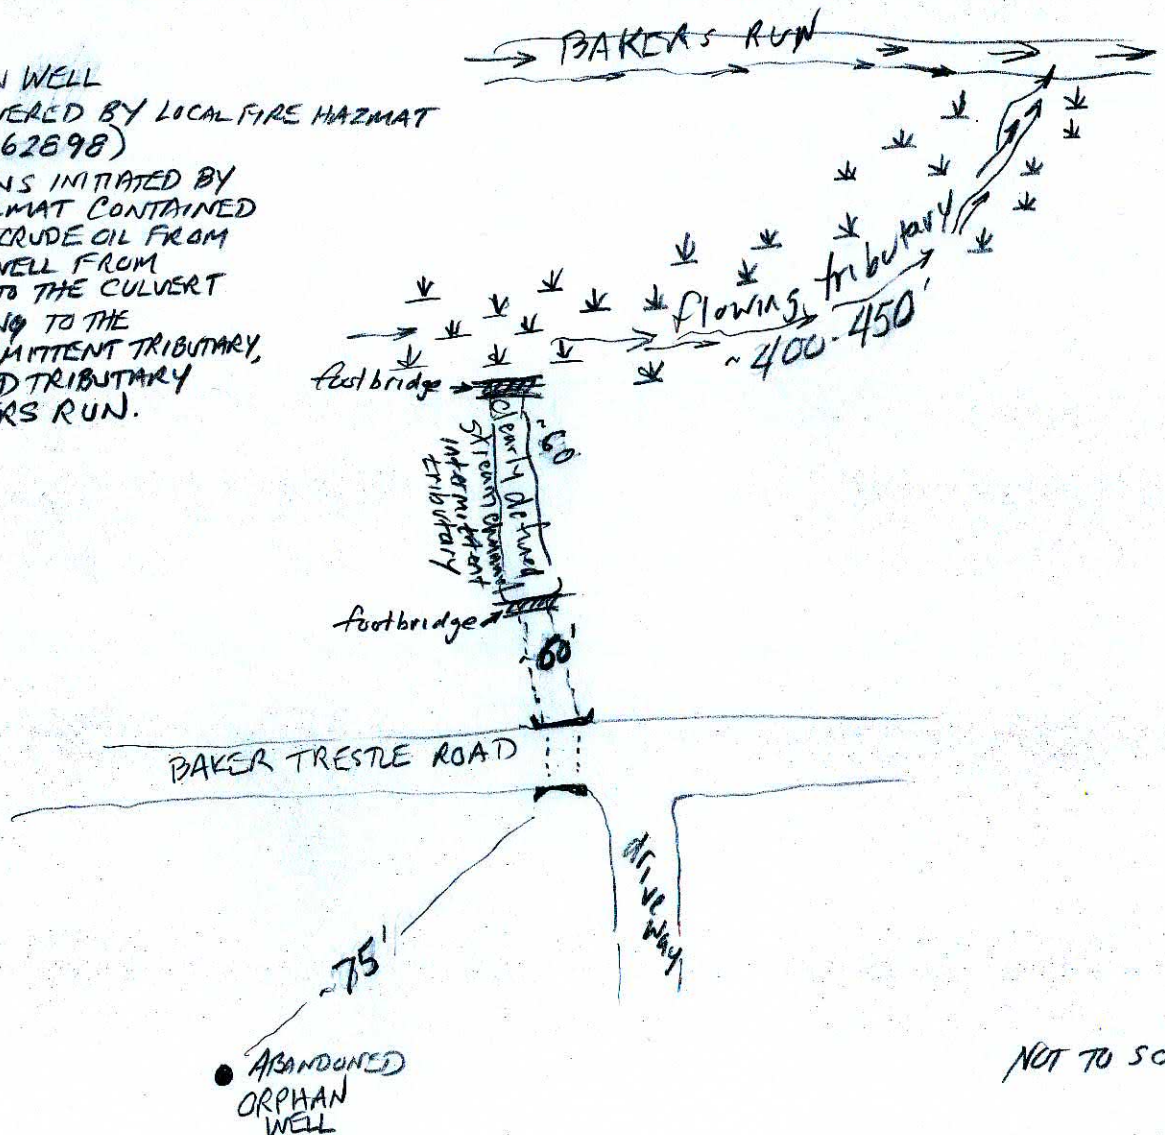 BAKERS RUN
N WELL
VERED BY LOCAL FIRE HAZMAT
62898)
NS INITIATED BY
ZMAT CONTAINED
CRUDE OIL FROM
WELL FROM
TO THE CULVERT
NG TO THE
MITTENT TRIBUTARY,
D TRIBUTARY
ERS RUN.
flowing tributary
~400-450'
footbridge
~60
clearly defined
stream channel
intermittent
tributary
footbridge
~60'
BAKER TRESTLE ROAD
driveway
~75'
ABANDONED
ORPHAN
WELL
NOT TO SC